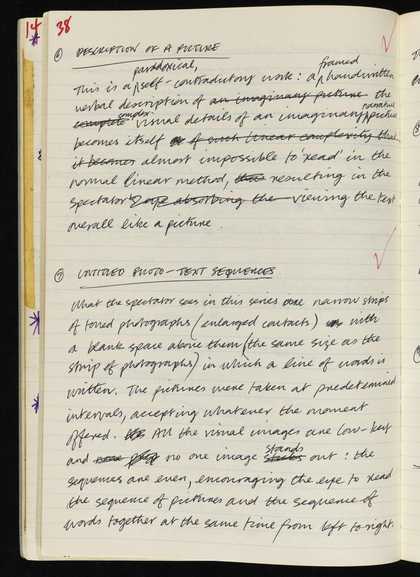 14 38
⑥ DESCRIPTION OF A PICTURE
paradoxical, framed
This is a self-contradictory work: a handwritten
verbal description of an imaginary picture the
complex narrative
complete visual details of an imaginary picture
becomes itself of such linear complexity that
it becomes almost impossible to 'read' in the
normal linear method, resulting in the
spectator's absorbing the viewing the text
overall like a picture.
⑦ UNTITLED PHOTO-TEXT SEQUENCES
What the spectator sees in this series are narrow strips
of toned photographs (enlarged contacts) with
a blank space above them (the same size as the
strip of photographs) in which a line of words is
written. The pictures were taken at predetermined
intervals, accepting whatever the moment
offered. All the visual images are low-key
stands
and no one image out: the
sequences are even, encouraging the eye to read
the sequence of pictures and the sequence of
words together at the same time from left to right.